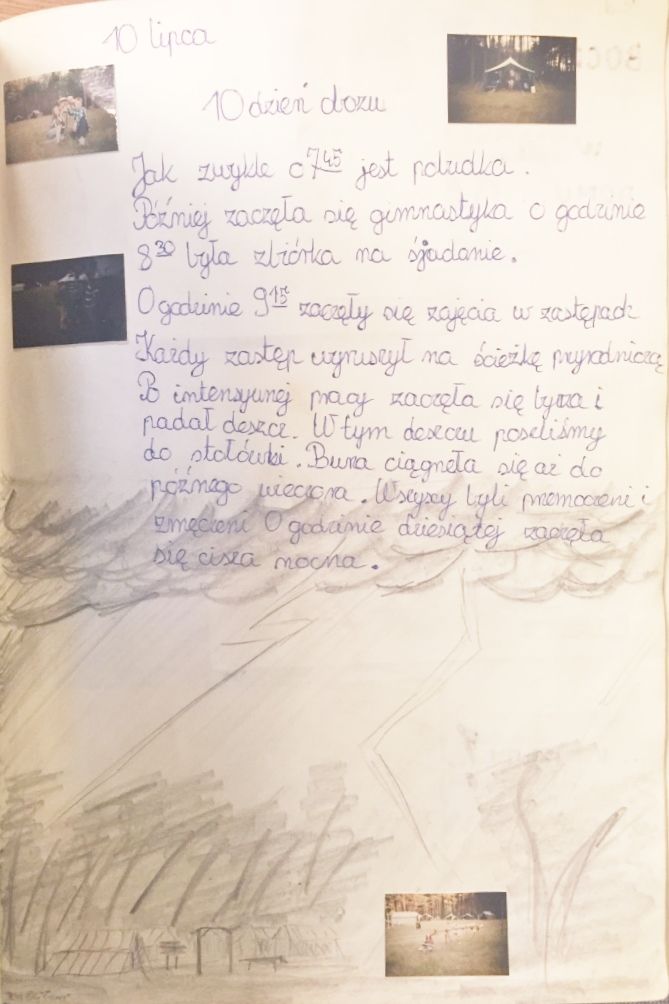 10 lipca
10 dzień obozu
Jak zwykle o 7 45 jest pobudka.
Później zaczęła się gimnastyka o godzinie
8 30 była zbiórka na śjadanie.
O godzinie 9 15 zaczęły się zajęcia w zastępach
Każdy zastęp wyruszył na ścieżkę przyrodniczą
B intensywnej pracy zaczęła się byrza i
padał deszcz. W tym deszczu poszliśmy
do stołówki. Burza ciągnęła się aż do
późnego wieczora. Wszyscy byli przemoczeni i
zmęczeni O godzinie dziesiątej zaczęła
się cisza nocna.